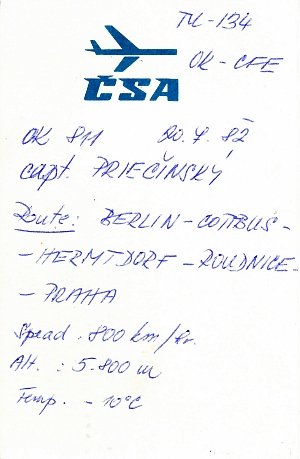 TU-134
OK-CFE
ČSA
OK 811 20.7.82
capt. PRIEČINSKÝ
Route: BERLIN-COTTBUS-
-HERMTDORF-ROUDNICE-
-PRAHA
Spead. 800 km/hr.
Alt. : 5.800 m
Temp. - 10°C